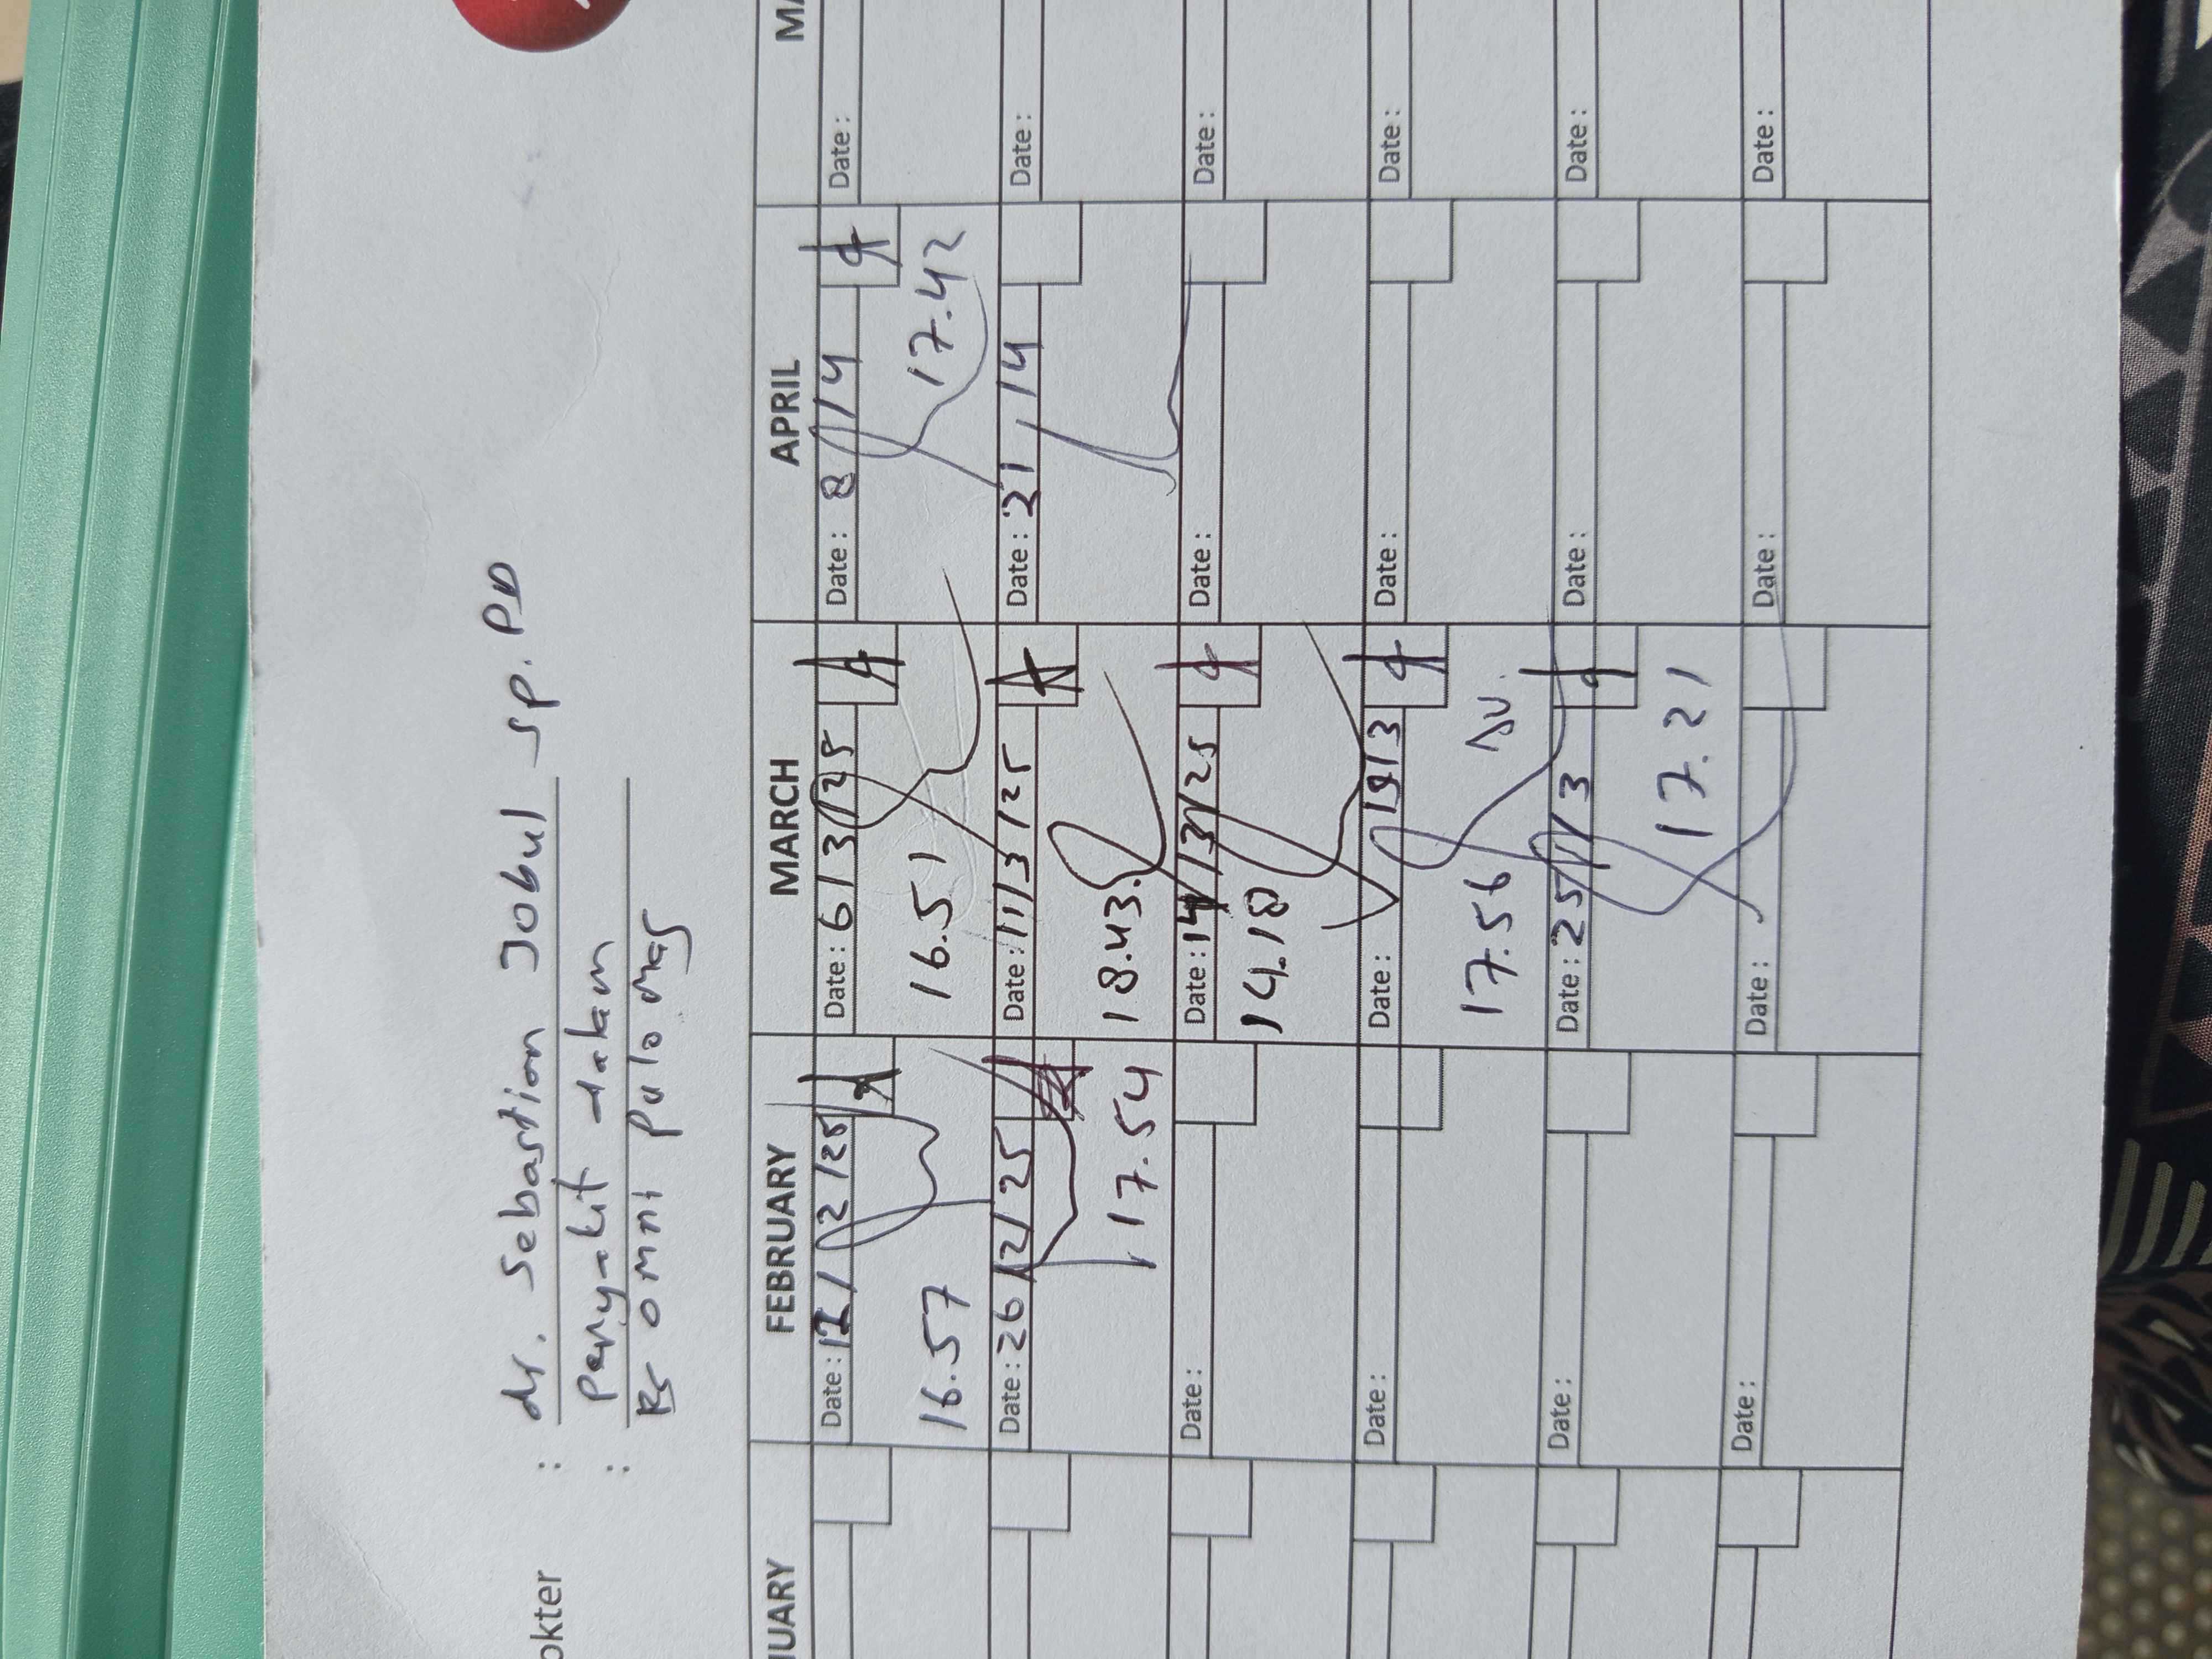 okter : dr. Sebastian Jobul sp. PD
: Penyakit dalam
RS OMNI Pulo mas
UARY FEBRUARY MARCH APRIL MA
Date : 12/2/25 Date : 6/3/25 Date : 8/4 Date :
16.57 16.51 17.42
Date : 26/2/25 Date : 11/3/25 Date : 21/4 Date :
17.54 18.43
Date : Date : 14/3/25 Date : Date :
14.18
Date : Date : 19/3 Date : Date :
17.56
Date : Date : 25/3 Date : Date :
17.21
Date : Date : Date : Date :